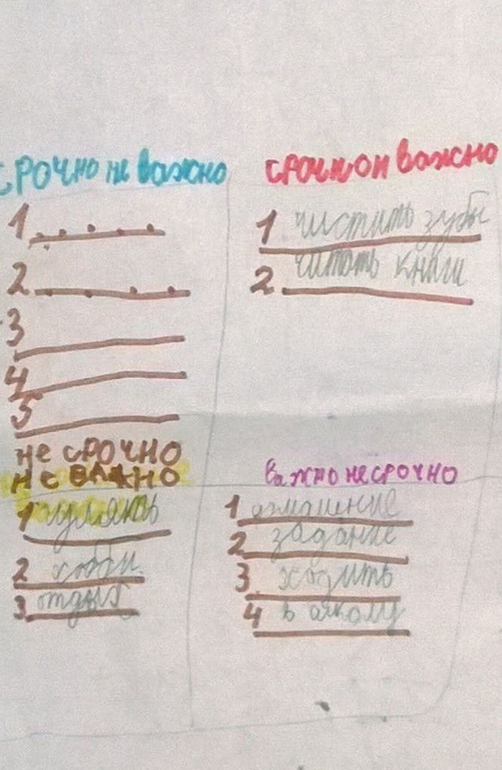 срочно не важно
срочно и важно
1
2
3
4
5
1 чистить зубы
2. читать книги
не срочно
не важно
1 гулять
2 хобби
3. отдых
важно несрочно
1 домашнее
2 задание
3 ходить
4 в школу